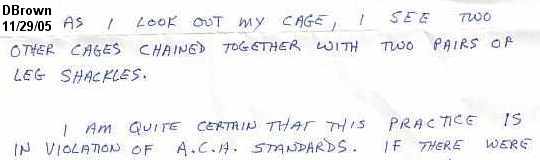 DBrown
11/29/05
AS I LOOK OUT MY CAGE, I SEE TWO
OTHER CAGES CHAINED TOGETHER WITH TWO PAIRS OF
LEG SHACKLES.
I AM QUITE CERTAIN THAT THIS PRACTICE IS
IN VIOLATION OF A.C.A. STANDARDS. IF THERE WERE